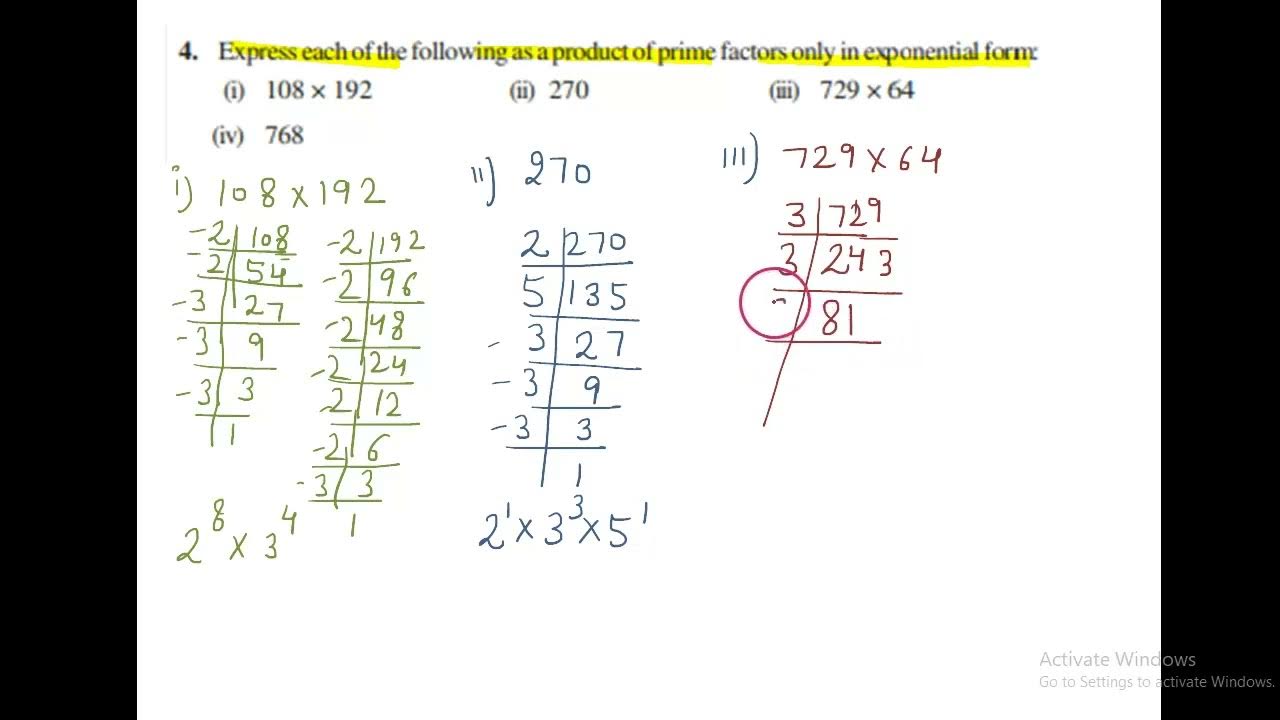 4. Express each of the following as a product of prime factors only in exponential form:
(i) 108 × 192 (ii) 270 (iii) 729 × 64
(iv) 768
i) 108 × 192
-2 108
-2 54
-3 27
-3 9
-3 3
1
-2 192
-2 96
-2 48
-2 24
-2 12
-2 6
-3 3
1
2⁸ × 3⁴
ii) 270
2 270
5 135
- 3 27
-3 9
-3 3
1
2¹ × 3³ × 5¹
III) 729 × 64
3 729
3 243
81
Activate Windows
Go to Settings to activate Windows.